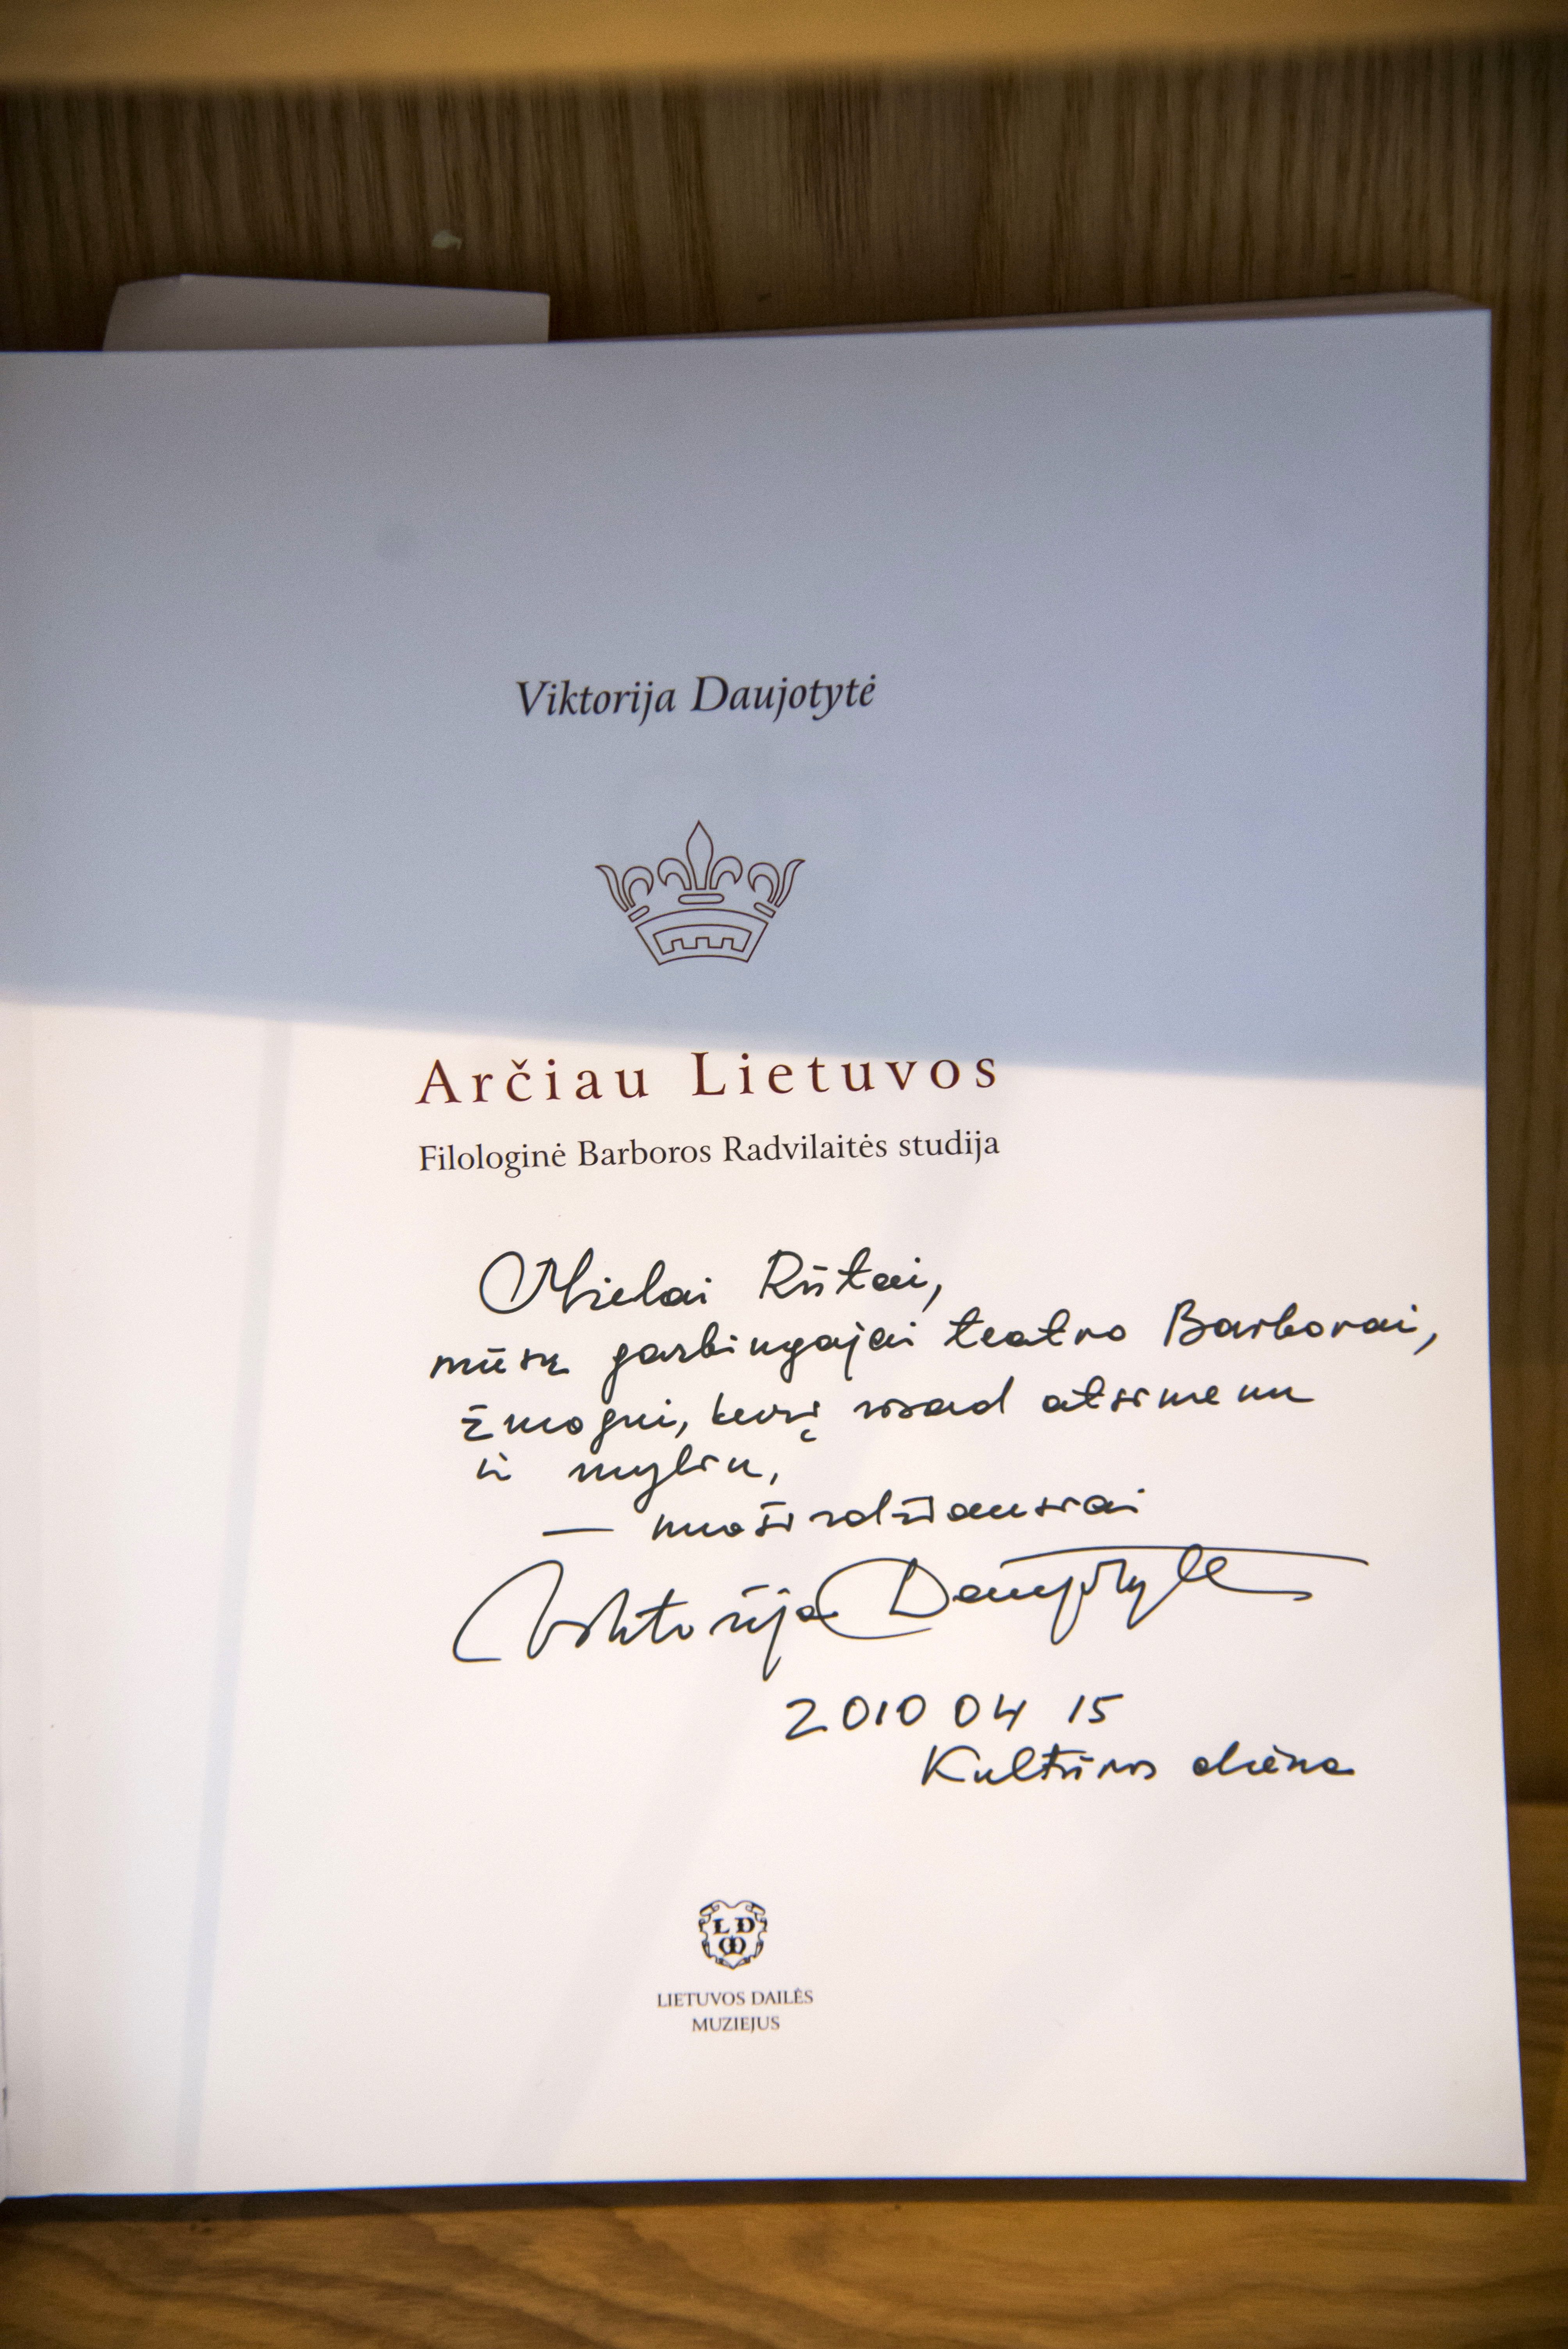 Viktorija Daujotytė
Arčiau Lietuvos
Filologinė Barboros Radvilaitės studija
Mielai Rūtai,
mūsų garbingajai teatro Barborai,
žmogui, kurį visad atsimenu
ir myliu,
— nuoširdžiausiai
Viktorija Daujotytė
2010 04 15
Kultūros diena
L D
M
LIETUVOS DAILĖS
MUZIEJUS